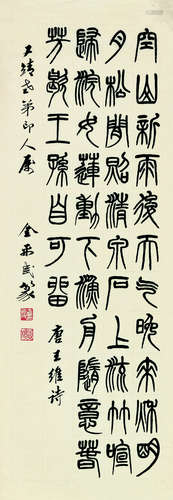 空山新雨後天气晚來秋明
月松間照清泉石上流竹喧
歸浣女蓮動下漁舟隨意春
芳歇王孫自可留
唐王維詩
大靖老弟印人属
金禹民篆